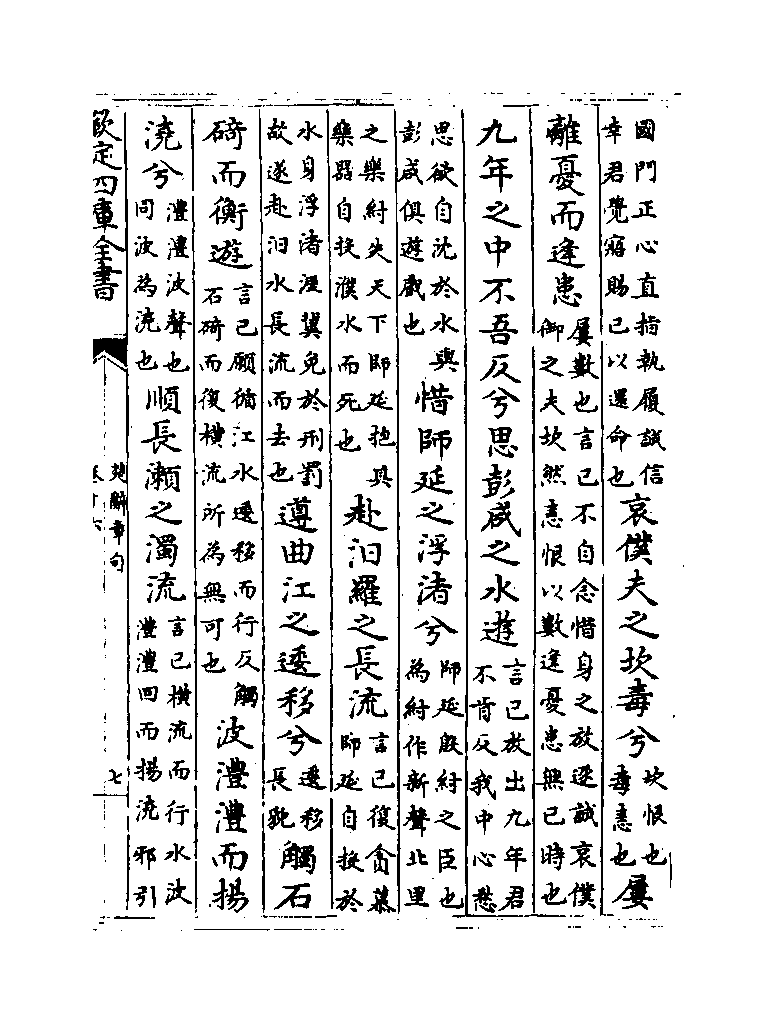 國門正心直指執履誠信幸君覺寤賜己以還命也哀僕夫之坎毒兮坎恨也毒恚也屢
離憂而逢患屢數也言己不自念惜身之放逐誠哀僕御之夫坎然恚恨以數逢憂患無已時也
九年之中不吾反兮思彭咸之水遊言己放出九年君不肯反我中心愁
思欲自沈於水與彭咸俱遊戲也惜師延之浮渚兮師延殷紂之臣也為紂作新聲北里
之樂紂失天下師延抱其樂器自投濮水而死也赴汨羅之長流言己復貪慕師延自投於
水身浮渚涯冀免於刑罰故遂赴汨水長流而去也遵曲江之逶移兮逶移長貌觸石
碕而衡遊言己願循江水逶移而行反觸石碕而復横流所為無可也波澧澧而揚
澆兮澧澧波聲也回波為澆也順長瀨之濁流言己横流而行水波澧澧回而揚澆邪引
欽定四庫全書
楚辭章句
卷十六
七